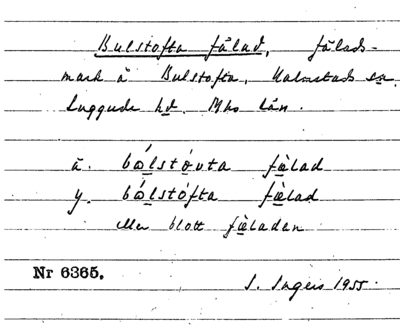 Bulstofta fälad, fälads-
mark å Bulstofta, Halmstads sn.
Luggude hd. Mhs län.
ä. bǿlstóvta fælad
y. bǿlstófta fælad
eller blott fæladen
Nr 6365.
S. Ingers 1955.